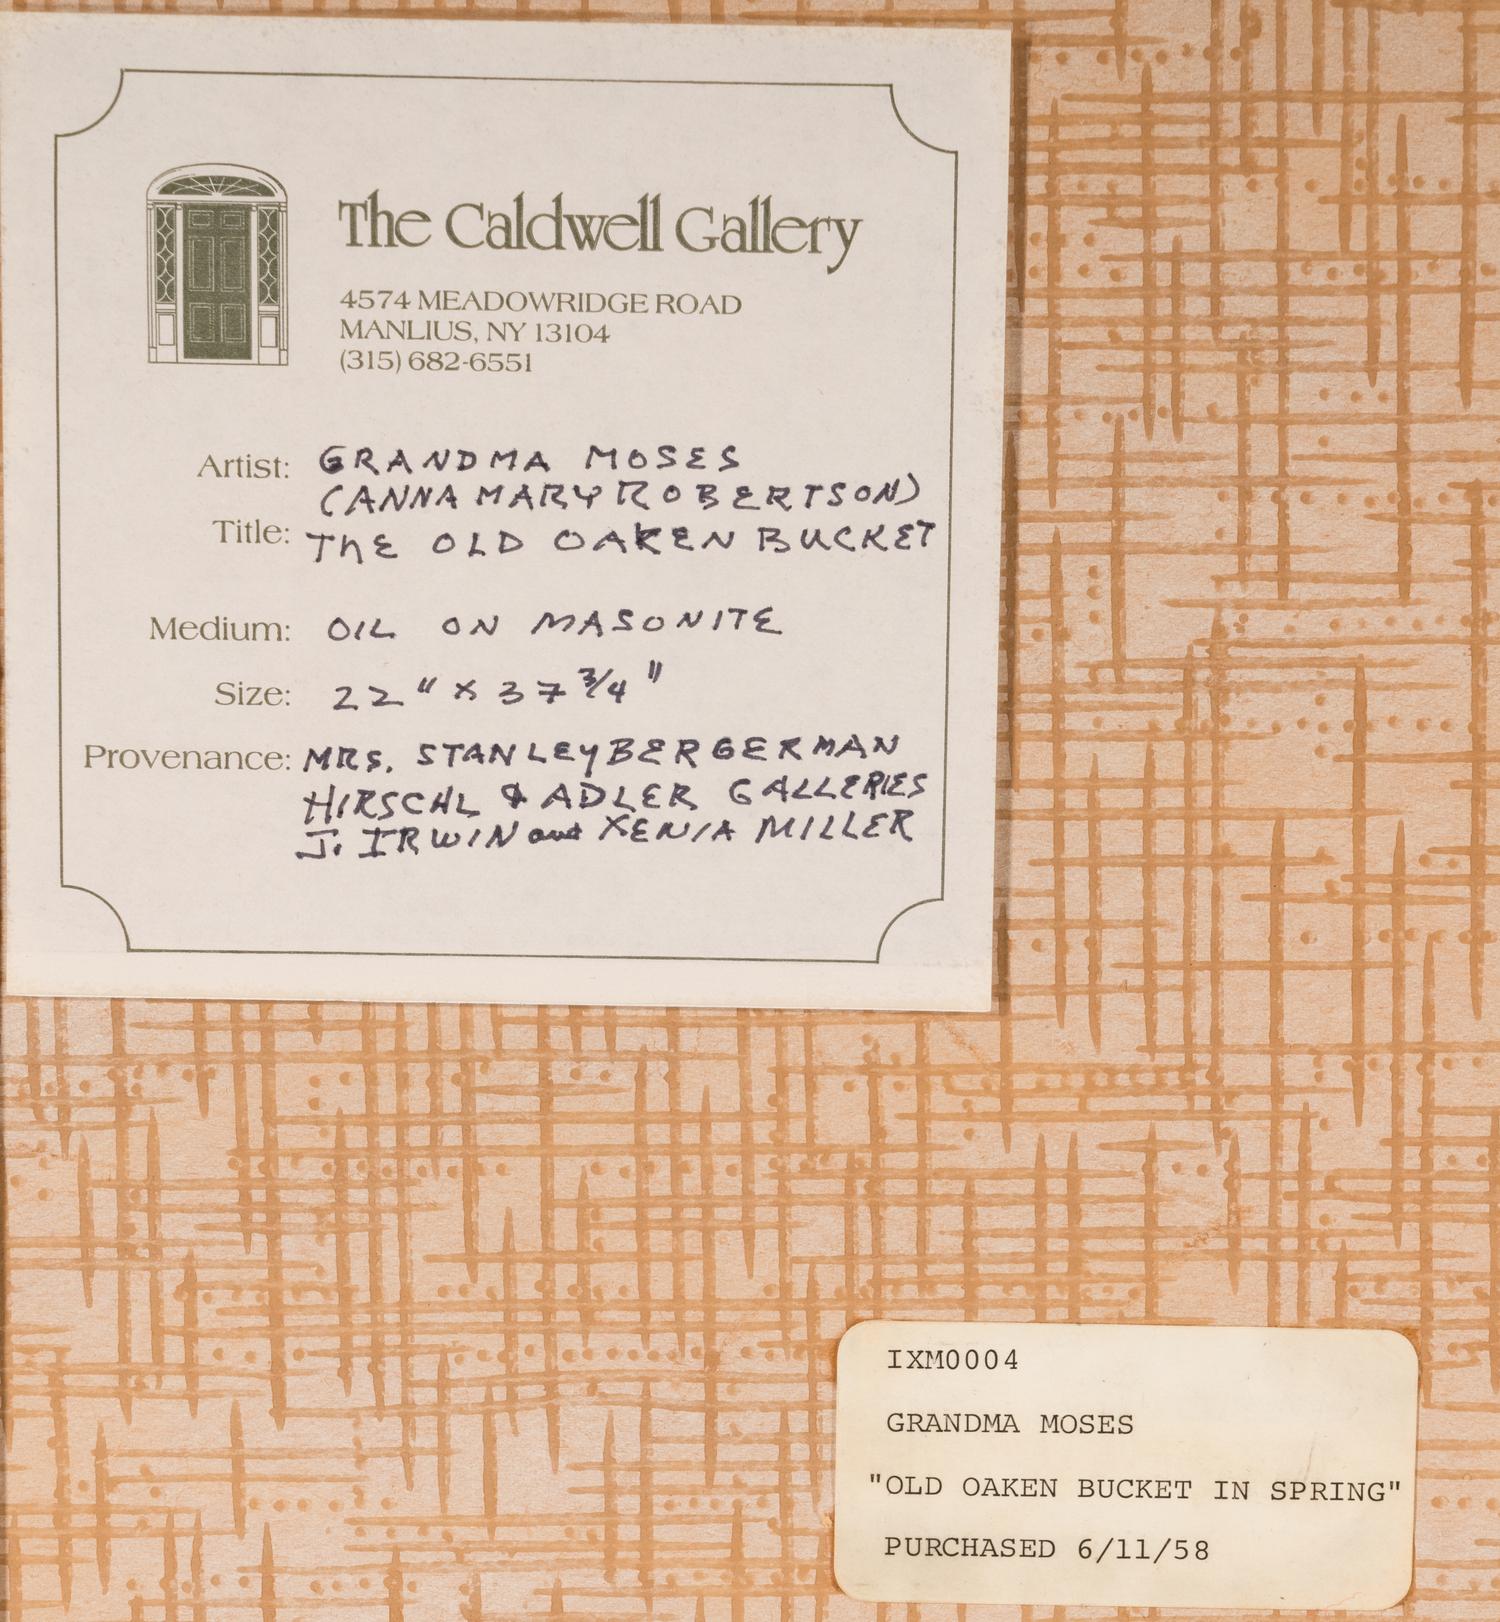 The Caldwell Gallery
4574 MEADOWRIDGE ROAD
MANLIUS, NY 13104
(315) 682-6551
Artist: GRANDMA MOSES
(ANNA MARY ROBERTSON)
Title: ThE OLD OAKEN BUCKET
Medium: OIL ON MASONITE
Size: 22" x 37 3/4"
Provenance: MRS. STANLEY BERGERMAN
HIRSCHL & ADLER GALLERIES
J. IRWIN and XENIA MILLER
IXM0004
GRANDMA MOSES
"OLD OAKEN BUCKET IN SPRING"
PURCHASED 6/11/58